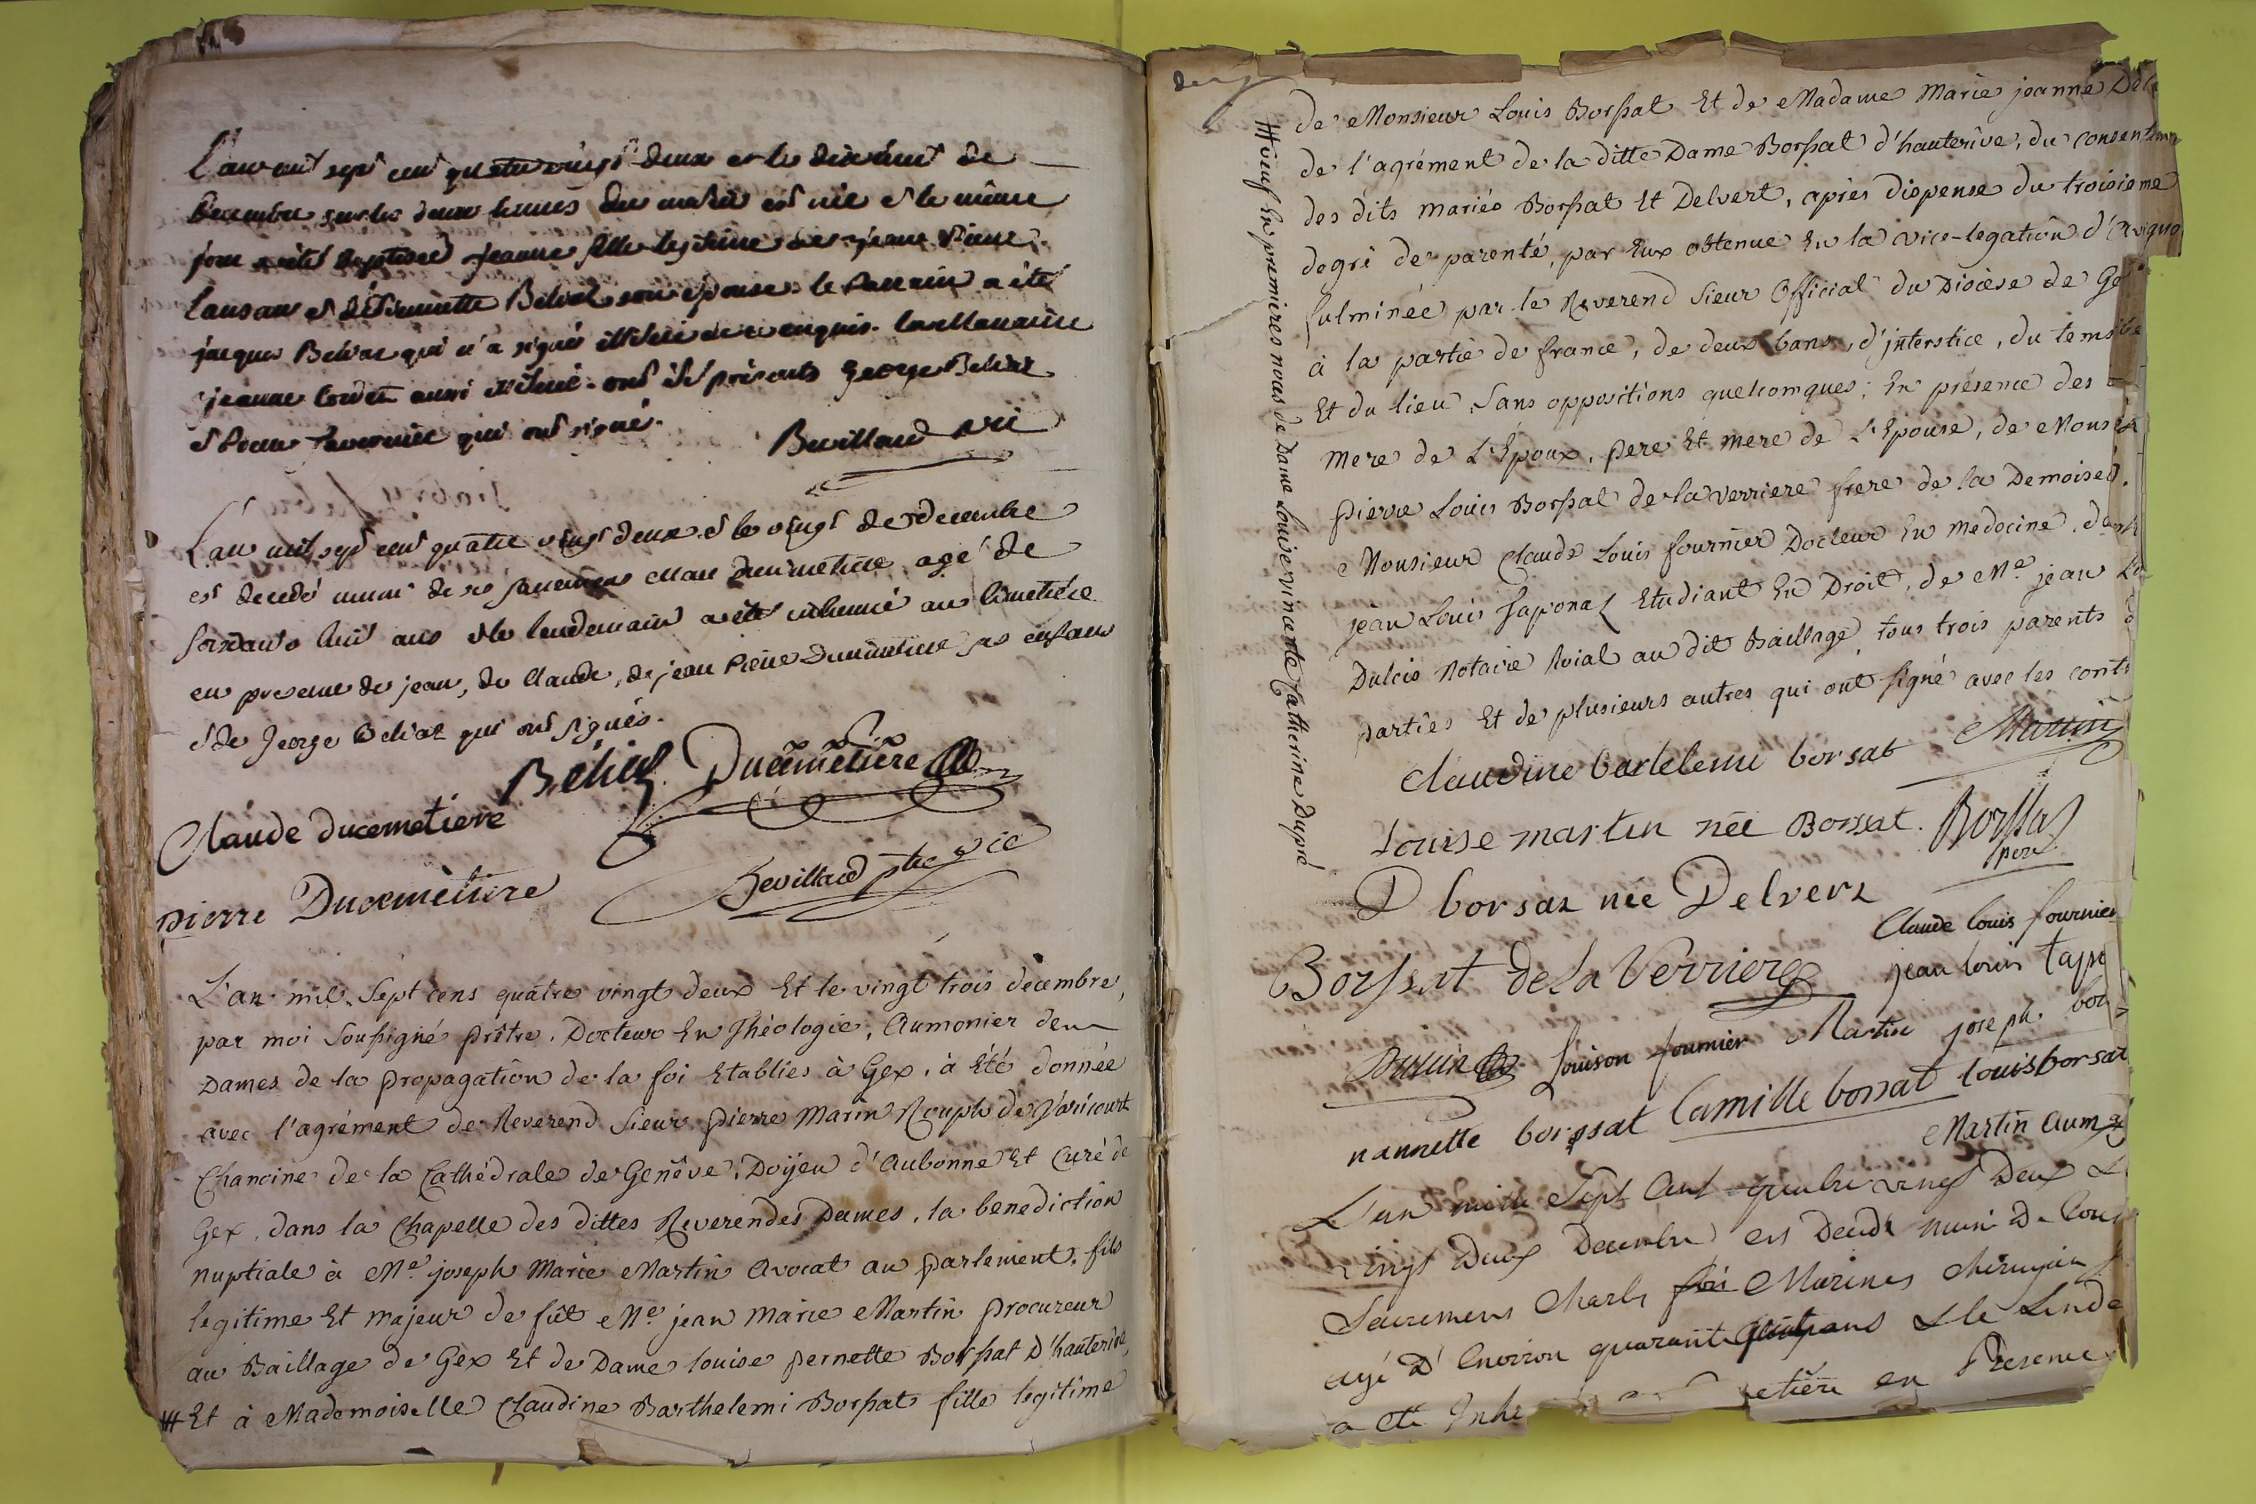 L'an mil sept cent quatre vingt deux et le dix huit de
decembre sur les deux heures du matin est née et le même
jour a été baptisée jeanne fille legitime de jeanne Pierre
Lansan et d'Etiennette Beliat son epouse. le Parrain a été
jacques Beliat qui n'a signé illiteré de ce enquis. la Marraine
jeanne aussi illiteré. ont été présents George Beliat
et qui ont signé.
Bevillard vic
L'an mil sept cent quatre vingt deux et le vingt de decembre
est decedé muni de ses sacremens Marc Ducimetiere agé de
soixante huit ans et le lendemain a été inhumé au cimetiére
en presence de jean, de Claude, de jean Pierre Ducimetiere ses enfans
et de George Beliat qui ont signés.
Béliat Ducemetière
Claude ducemetiere
pierre Ducemètiere
Bevillard ptre vic
L'an mil Sept cens quatre vingt deux Et le vingt trois décembre,
par moi Soussigné prêtre, Docteur En Théologie, Aumonier des
Dames de la propagation de la foi Etablies à Gex, à Eté donnée
avec l'agrément de Reverend Sieur pierre Marin Rouph de Varicourt
Chanoine de la Cathédrale de Genêve, Doyen d'Aubonne Et Curé de
Gex, dans la Chapelle des dittes Reverendes Dames, la benediction
nuptiale à Me. joseph Marie Martin Avocat au parlement, fils
legitime Et majeur de fût Me. jean Marie Martin procureur
au Baillage de Gex Et de Dame louise pernette Borssat D'hauterive,
# Et à Mademoiselle Claudine Barthelemi Borssat fille legitime
de Monsieur Louis Borssat Et de Madame Marie jeanne
de l'agrément de la ditte Dame Borssat d'hauterive, du
des dits mariés Borssat Et Delvert, après dispense du troisieme
degré de parenté, par Eux obtenue En la vice-legation
fulminée par le Reverend Sieur Official du Diocèse de
à la partie de france, de deux bans, d'jnterstice, du tems
Et du lieu, Sans oppositions quelconques; En présence des
mere de L'Epoux, pere Et mere de L'Epouse, de
pierre Louis Borssat de la verriere frere de la
Monsieur Claude Louis fournier Docteur En medecine, de
jean Louis Taponat Etudiant En Droit, de Me. jean
Dulcis Notaire Roial au dit Baillage, tous trois parents
parties Et de plusieurs autres qui ont signé avec les
# veuf En premieres noces de Dame Louise vincente Catherine Dupré
Claudine bartelemi borsat Martin
Louise martin née Borssat. Borssat
pere
D borsat née Delvert
Claude louis fournier
Borssat de la Verriere jean louis
Dulcis Louison fournier Martin joseph
nannette borssat Camille borsat louis borsat
Martin
L'an mille Sept Cent quatre vingt Deux
vingt Deux Decembre est Decedé muni De
Sacremens Charles Marines chirurgien
agé D'Environ quarante ans & le
a eté en Presence